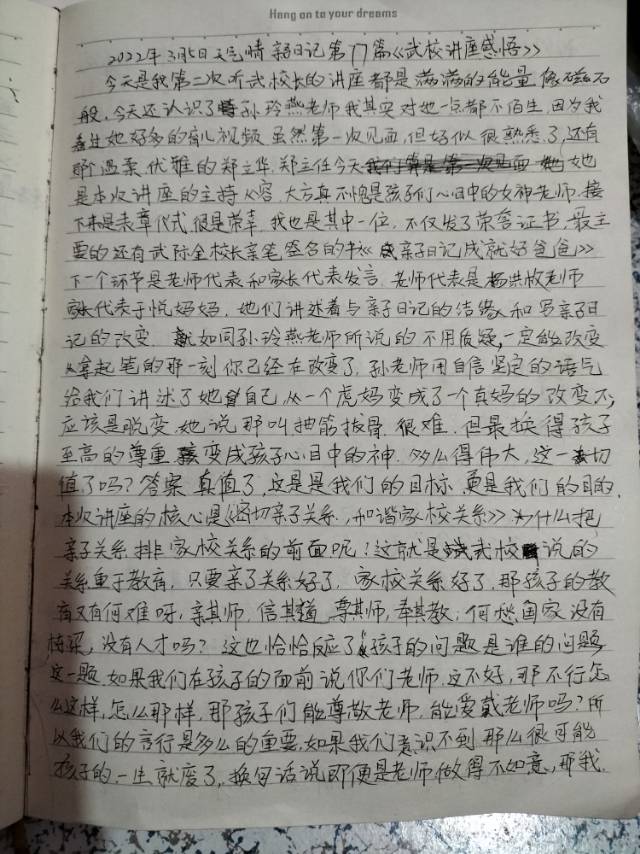 Hang on to your dreams
2022年3月5日 天气晴 亲子日记第77篇《武校讲座感悟》
今天是我第二次听武校长的讲座都是满满的能量像磁石
般,今天还认识了孙玲燕老师我其实对她一点都不陌生,因为我
看过她好多的育儿视频 虽然第一次见面,但好似很熟悉了,还有
那个温柔.优雅的郑立华.郑主任今天她
是本次讲座的主持 从容.大方真不愧是孩子们心目中的女神老师.接
下来是表章仪式.很是荣幸.我也是其中一位.不仅发了荣誉证书,最主
要的还有武际金校长亲笔签名的书《亲子日记成就好爸爸》
下一个环节是老师代表和家长代表发言.老师代表是杨洪敏老师
家长代表于悦妈妈.她们讲述着与亲子日记的结缘和写亲子日
记的改变.就如同孙玲燕老师所说的不用质疑,一定能改变
从拿起笔的那一刻你已经在改变了.孙老师用自信坚定的语气
给我们讲述了她自己从一个虎妈变成了一个真妈的改变不,
应该是脱变.她说那叫抽筋拔骨.很难.但最换得孩子
至高的尊重 变成孩子心目中的神.多么得伟大,这一切
值了吗?答案 真值了,这是是我们的目标 更是我们的目的.
本次讲座的核心是《密切亲子关系,和谐家校关系》为什么把
亲子关系 排家校关系的前面呢!这就是武校说的
关系重于教育,只要亲子关系好了,家校关系好了,那孩子的教
育又有何难呀,亲其师,信其道,尊其师,奉其教;何愁国家没有
栋梁,没有人才吗?这也恰恰反应了孩子的问题是谁的问题
这一题.如果我们在孩子的面前说你们老师,这不好,那不行怎
么这样,怎么那样,那孩子们能尊敬老师,能爱戴老师吗?所
以我们的言行是多么的重要,如果我们意识不到那么很可能
孩子的一生就废了,换句话说即便是老师做得不如意,那我.